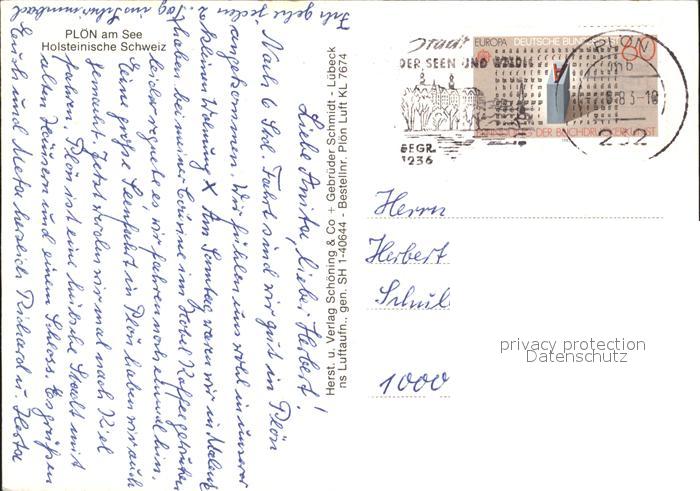 PLÖN am See
Holsteinische Schweiz
Liebe Anita, lieber Herbert!
Nach 6 Std. Fahrt sind wir gut in Plön
angekommen. Wir fühlen uns wohl in unserer
kleinen Wohnung X Am Sonntag waren wir in Malente
haben bei meiner Cousine im Kaffee getrunken
leider regnete es wir fahren noch einmal hin.
Eine große Seenfahrt in Plön haben wir auch
gemacht. Jetzt wollen wir mal nach Kiel
fahren. Plön ist eine hübsche Stadt mit
alten Häusern und einem Schloss. Es grüßen
Euch und Meta herzlich Richard u. Herta
Ich gehe jeden 2. Tag ins Schwimmbad
Herst. u. Verlag Schöning & Co + Gebrüder Schmidt - Lübeck
ns Luftaufn., gen. SH 1-40644 - Bestellnr. Plön Luft KL 7674
Stadt
DER SEEN UND WÄLDER
BEGR.
1236
EUROPA DEUTSCHE BUNDES
80
DER BUCHDRUCKERKUNST
PLÖN
mb
8.83-18
232
Herrn
Herbert
Schul
1000
privacy protection
Datenschutz